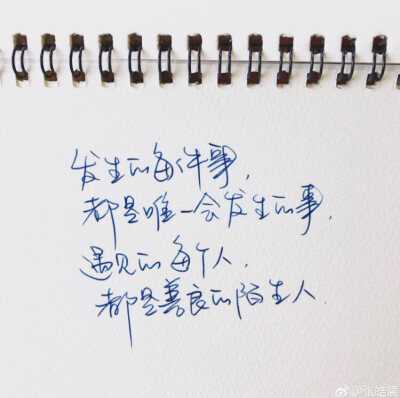 发生的每件事，
都是唯一会发生的事，
遇见的每个人，
都是善良的陌生人.
@张皓宸